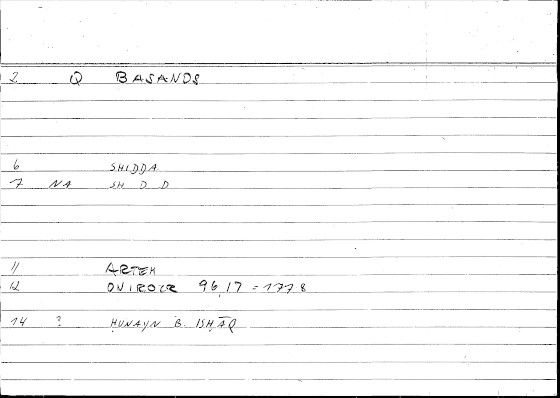 2 Q BASANDS
6 SHIDDA
7 NA SH D D
11 ARTEM
12 ONIROCR 96,17 = 1778
14 ? ḤUNAYN B. ISḤĀQ